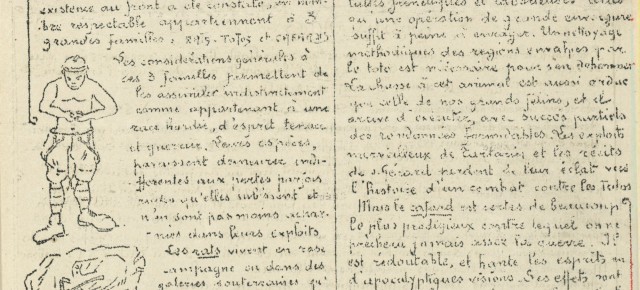 existence au front a été constaté, un nom-
bre respectable appartiennent à 3
grandes familles: RATS-TOTOS et CAFARDS
Les considérations générales à
ces 3 familles permettent de
les assimiler indistinctement
comme appartenant à une
race hardie, d'esprit tenace
et guerrier. Leurs espèces,
paraissent demeurer indif-
férentes aux pertes parfois
rudes qu'elles subissent et
n'en sont pas moins achar-
nées dans leurs exploits
Les rats vivent en rase
campagne ou dans des
galeries souterraines qu'
ou une opération de grande envergure
suffit à peine à enrayer. Un nettoyage
méthodique des régions envahies par
le toto est nécessaire pour s'en débarrasser
La chasse à cet animal est aussi ardue
que celle de nos grands félins, et il
arrive d'exécuter, avec succès parfois
des randonnées formidables. Les exploits
merveilleux de Tartarin et les récits
de Gérard perdent de leur éclat vers
l'histoire d'un combat contre les Totos
Mais le cafard est certes de beaucoup
le plus prodigieux contre lequel on ne
prêchera jamais assez la guerre. Il
est redoutable, et hante les esprits
d'apocalyptiques visions. Ses effets sont